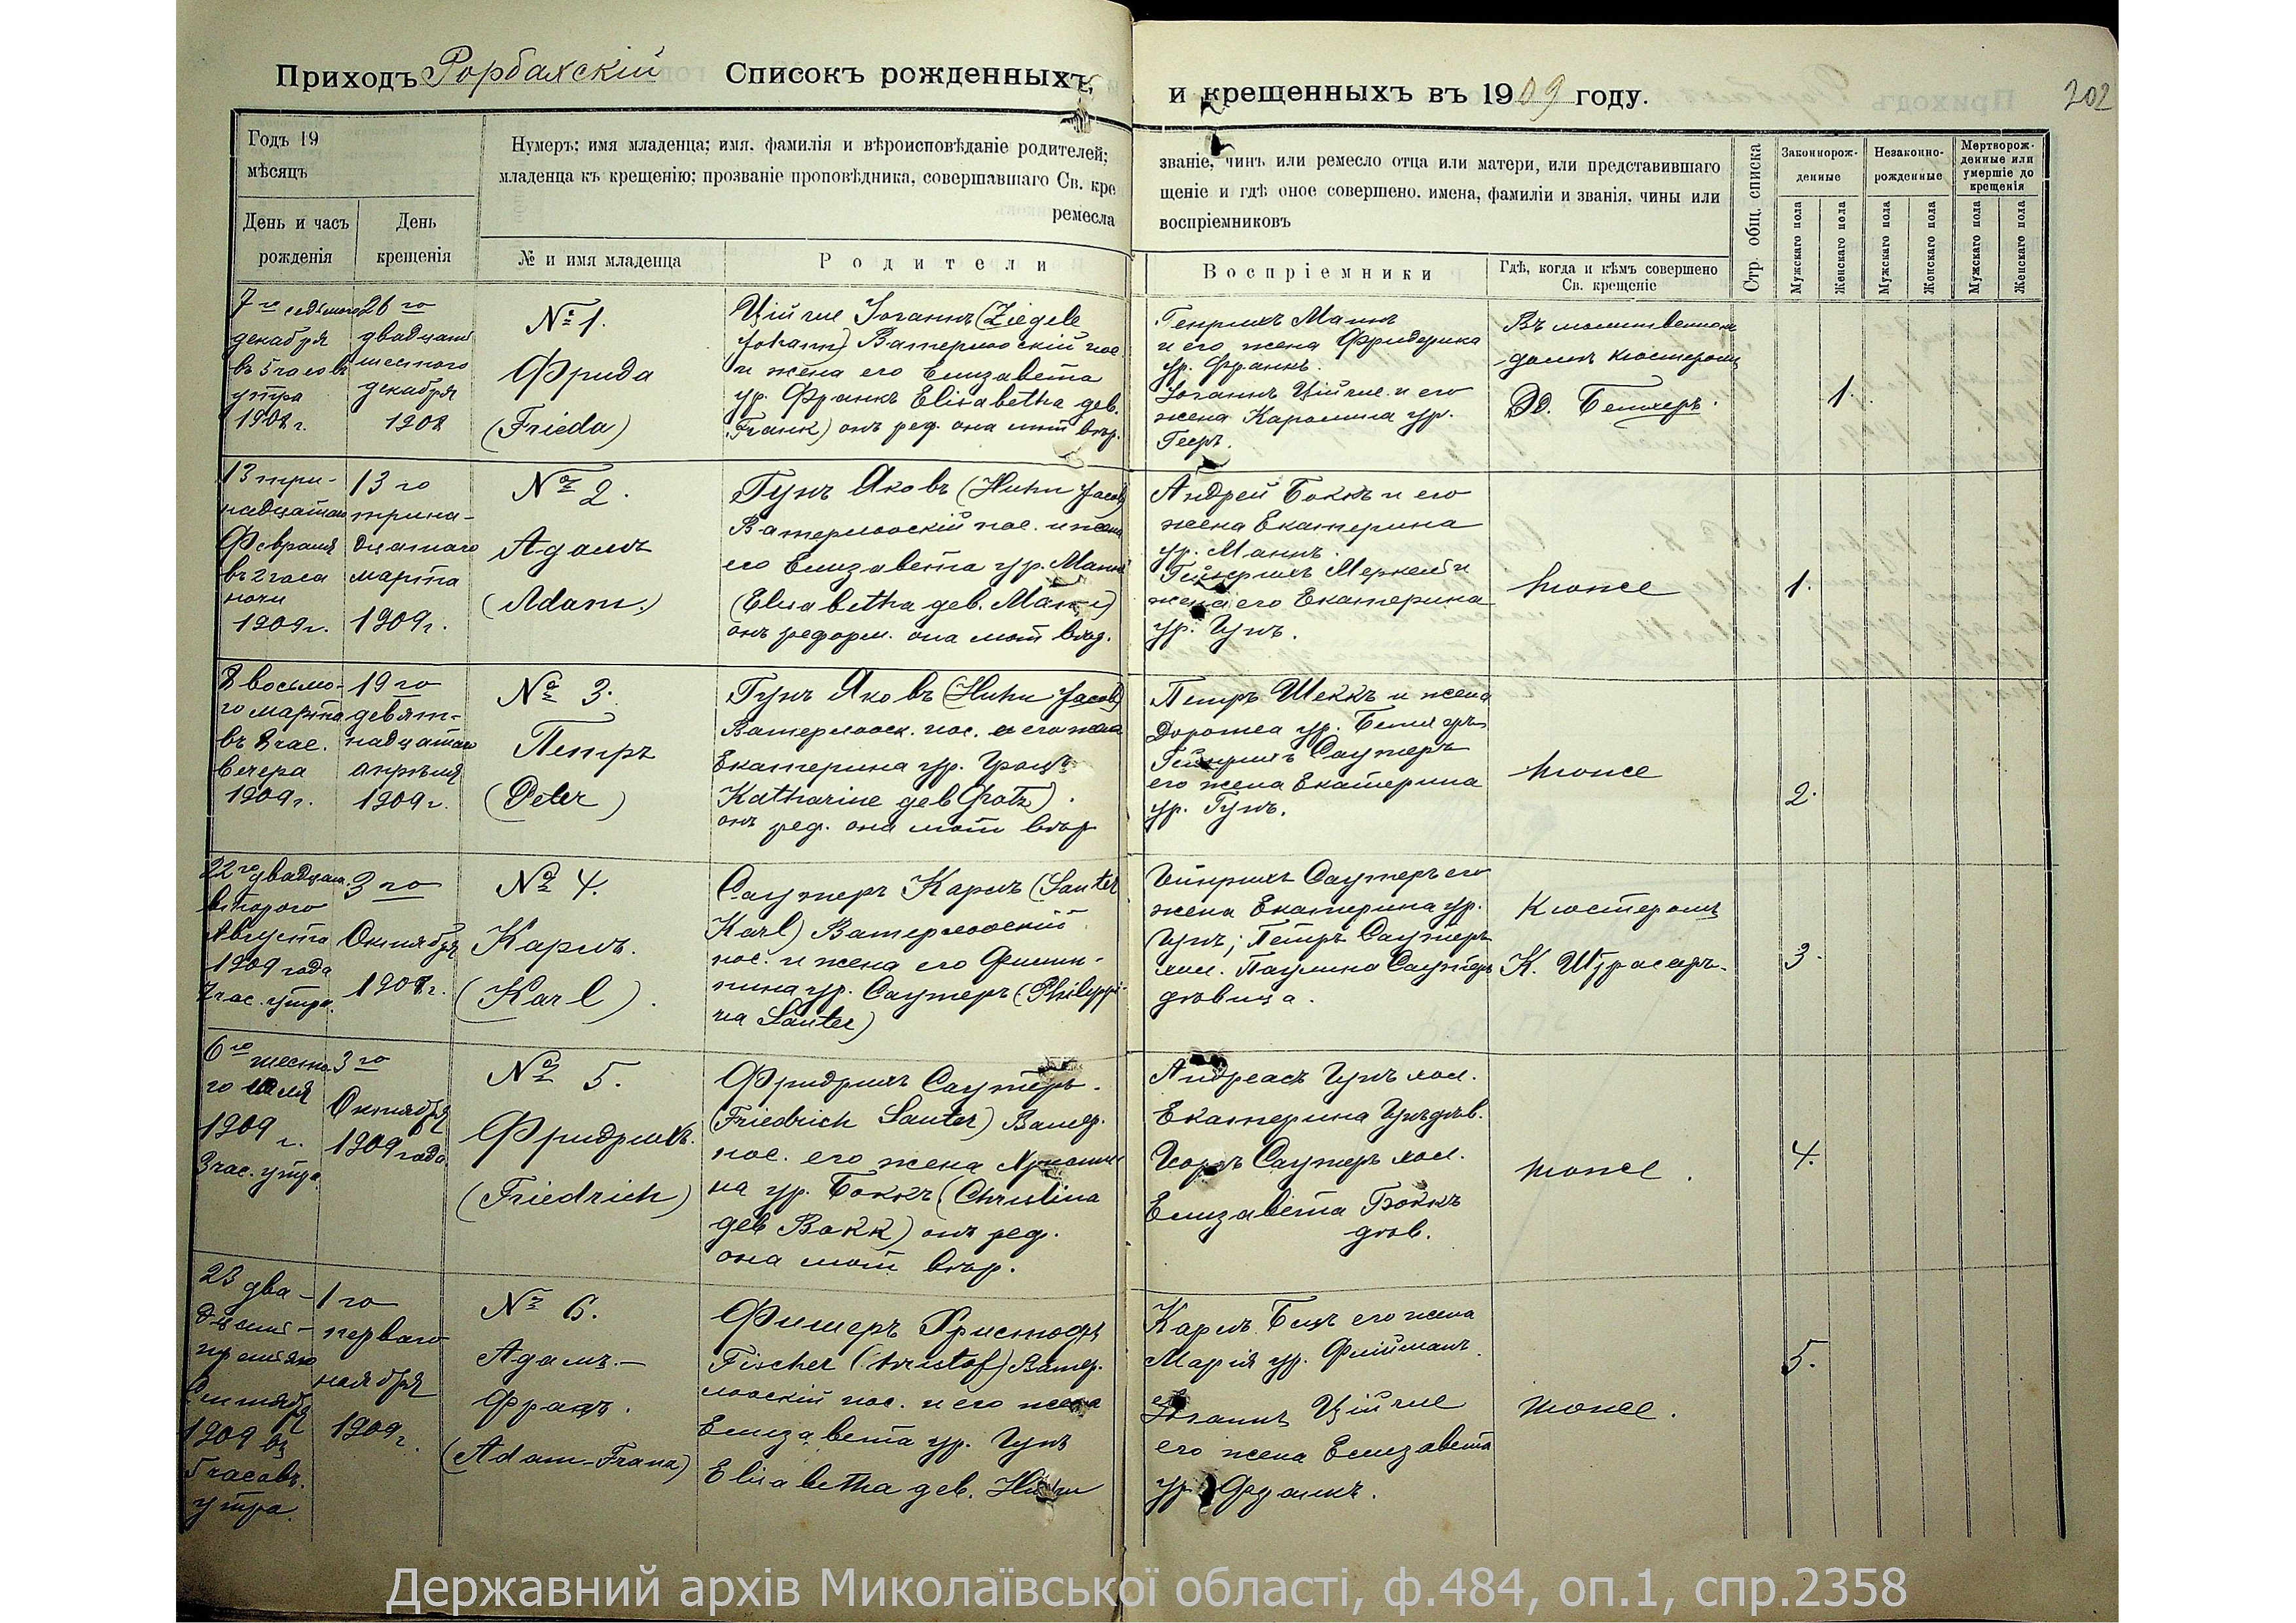 Приходъ Рорбахскій Списокъ рожденныхъ,
и крещенныхъ въ 1909 году.
202
Годъ 19
мѣсяцъ
День и часъ
рожденія
День
крещенія
Нумеръ; имя младенца; имя, фамилія и вѣроисповѣданіе родителей;
младенца къ крещенію; прозваніе проповѣдника, совершавшаго Св. кре
ремесла
№ и имя младенца
Родители
званіе, чинъ или ремесло отца или матери, или представившаго
щеніе и гдѣ оное совершено, имена, фамиліи и званія, чины или
воспріемниковъ
Воспріемники
Гдѣ, когда и кѣмъ совершено
Св. крещеніе
Стр. общ. списка
Законнорож-
денные
Незаконно-
рожденные
Мертворож-
денные или
умершіе до
крещенія
Мужскаго пола
Женскаго пола
Мужскаго пола
Женскаго пола
Мужскаго пола
Женскаго пола
7го седьмого
декабря
въ 5 часовъ
утра
1908 г.
26го
двадцать
шестого
декабря
1908
№ 1.
Фрида
(Frieda)
Цигле Іоганнъ (Ziegele
Johann) Ватерлооскій пос.
и жена его Елизавета
ур. Франкъ Elisabetha geb.
Frank) онъ реф. она лют вѣр.
Генрихъ Маннъ
и его жена Фридерика
ур. Франкъ.
Іоганнъ Цигле и его
жена Каролина ур.
Въ молитвенномъ
домѣ кюстеромъ
Эд.
1.
13 три-
надцатаго
Февраля
въ 2 часа
ночи
1909 г.
13 го
трина-
дцатаго
марта
1909 г.
№ 2.
Адамъ
(Adam.)
Гунъ Яковъ (Huhn Jacob)
Ватерлооскій пос. и жена
его Елизавета ур. Маннъ
(Elisabetha geb. Mann)
онъ реформ. она лют вѣр.
Андрей Боккъ и его
жена Екатерина
ур. Маннъ.
Гейнрихъ Меркель и
жена его Екатерина
ур. Гунъ.
тоже
1.
8 восьмо-
го марта
въ 8 час.
вечера
1909 г.
19 го
девят-
надцатаго
апрѣля
1909 г.
№ 3.
Петръ
(Peter)
Гунъ Яковъ (Huhn Jacob)
Ватерлооск. пос. и его жена
Екатерина ур. Гроцъ
Katharine geb Grotz).
онъ реф. она лют вѣр
Петръ Шеккъ и жена
Доротеа ур.
Гейнрихъ Саутеръ
его жена Екатерина
ур. Гунъ.
тоже
2.
22го двадцать
второго
Августа
1909 года
час. утра.
3 го
Октября
№ 4.
Карлъ.
(Karl).
Саутеръ Карлъ (Sauter
Karl) Ватерлооскій
пос. и жена его Филип-
пина ур. Саутеръ (Philippi-
na Sauter)
Гейнрихъ Саутеръ его
жена Екатерина ур.
Гунъ; Петръ Саутеръ
хол. Паулина Саутеръ
дѣвица.
Кюстеромъ
К. Штрасеръ.
3.
6го шесто
го
1909 г.
3 час. утра
3 го
Октября
1909 года
№ 5.
Фридрихъ.
(Friedrich)
Фридрихъ Саутеръ.
(Friedrich Sauter) Ватер.
пос. его жена Христи
на ур. Боккъ (Christina
geb Bokk) онъ реф.
она лют вѣр.
Андреасъ Гунъ хол.
Екатерина Гунъ дѣв.
Георгъ Саутеръ хол.
Елизавета Боккъ
дѣв.
тоже.
4.
23 два-
дцать-
третьяго
Сентября
1909 въ
5 часовъ.
утра.
1 го
перваго
ноября
1909 г.
№ 6.
Адамъ-
Францъ.
(Adam-Franz)
Фишеръ Христофъ
Fischer (Kristof) Ватер.
лооскій пос. и его жена
Елизавета ур. Гунъ
Elisabetha geb. Huhn
Карлъ Бецъ его жена
Марія ур.
Іоганнъ Цигле
его жена Елизавета
ур. Франкъ.
тоже.
5.
Державний архів Миколаївської області, ф.484, оп.1, спр.2358